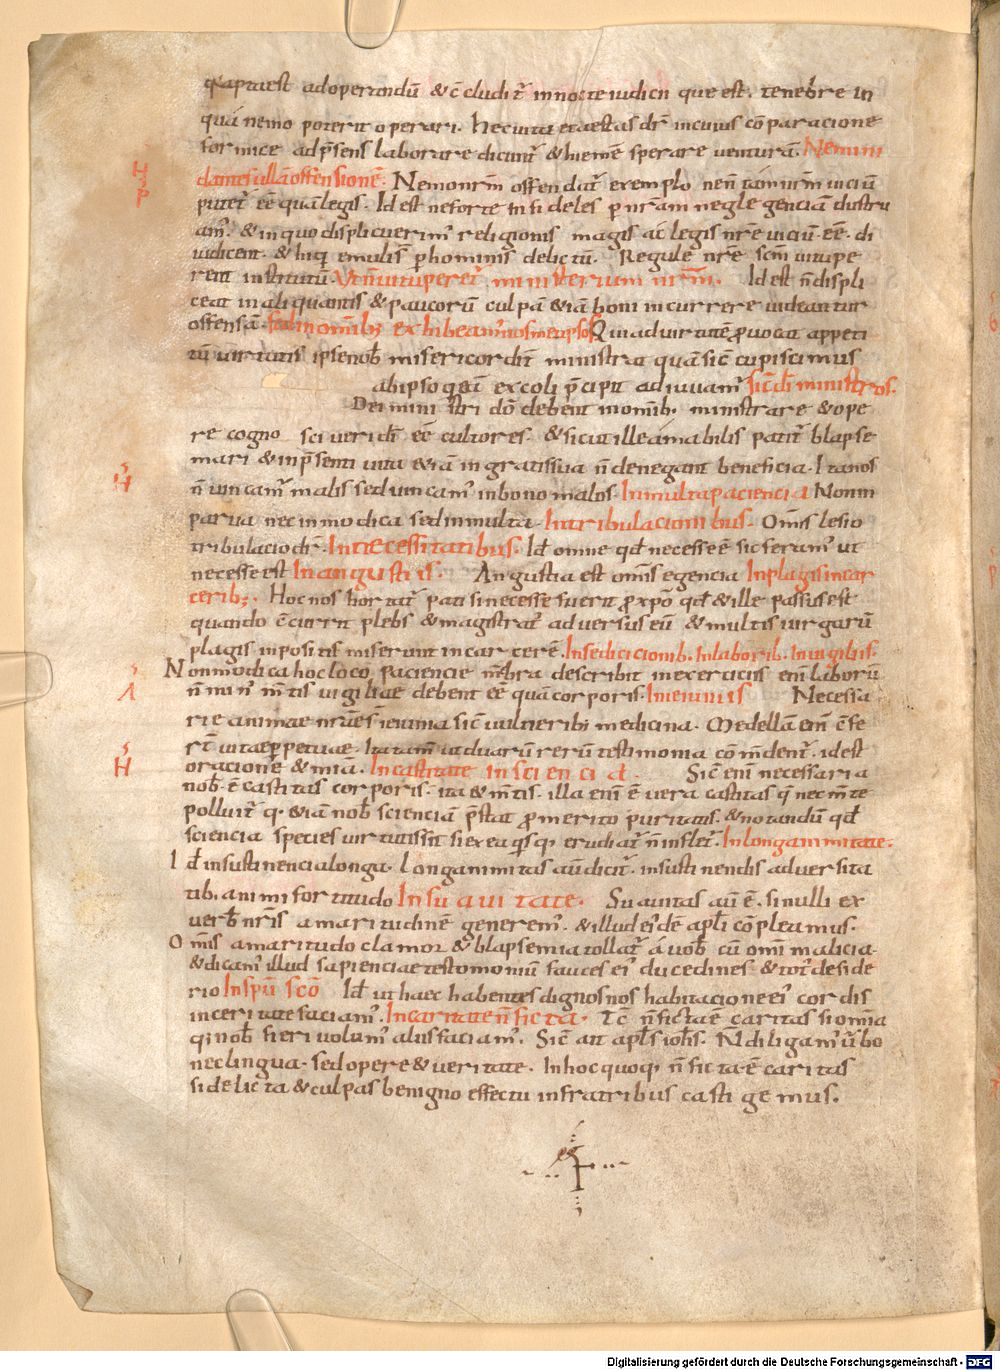 q aptu est ad operandū & c̄cludit̄ in nocte iudicii que est. tenebre in
quā nemo poterit operari. Hec uita et aestas dr̄ in cuius cōparacione
formice ad p̄sens laborare dicunt̄ & hiemē sperare venturā. Nemini
dantes ullā offensionē. Nemo nr̄m offendat̄ exemplo ne n̄ tam nr̄m uiciū
putet̄ eē quā legis. Id est ne forte infideles p̄ nr̄am neglegenciā dustru
am̄. & in quo displicuerim̄ religionis magis ac legis nr̄e uiciū eē. di
iudicent. & hiq emulis p̄ hominis delictū. Regule nr̄e scm̄ uitupe
rent institutū. Ut n̄ uituperet̄ ministerium nr̄m. Id est n̄ displi
ceat in aliquantis & paucorū culpā & iā boni incurrere uideantur
offensā. Sed in omīb; exhibeam̄ nosmet ipsos Qui ad uirtutē p̄uocat appeti
tū uirtutis ipse nob̄ misericordit̄ ministrat quā sic̄ cupiscimus
ab ipso q etiā excoli p̄cipit adiuuam̄ sic̄ dī ministros.
Dei ministri dō debent in omīb; ministrare & ope
re cognosci ueri dī eē cultores. & sicut ille amabilis patit̄ blapse
mari & in p̄senti uita & iā ingratis sua n̄ denegant beneficia. Ita nos
n̄ uincam̄ malis sed uincam̄ in bono malos. In multa paciencia Non in
parua nec in modica sed in multa. In tribulacionibus. Om̄is lesio
tribulacio dr̄. In necessitatibus. Id omne qd̄ necesse ē sic feram̄ ut
necesse est In angustiis. Angustia est om̄is egencia In plagis in car
cerib;. Hoc nos hortat̄ pati si necesse fuerit p̄ xpō qd̄ & ille passus est
quando c̄currit plebs & magistrat̄ aduersus eū & multis uirgarū
plagis inpositis miserunt in carcerē. In sedicionib. In laborib. In uigiliis.
Non modica hoc loco paciencie mēbra describit in exerciciis enī laborū
n̄ min̄ m̄tis uigiliae debent eē quā corporis. In ieiuniis Necessa
rie animae nr̄ae st̄ ieiunia sic̄ uulnerib; medicina. Medellā enī c̄se
rt̄ uitae p̄petuae. Ita tam̄ ut duarū rerū testimonia cōm̄dent̄. id est
oracione & miā. In castitate in sciencia. Sic̄ enī necessaria
nob̄. ē castitas corporis. ita & m̄tis. illa enī ē uera castitas q̄ nec m̄te
polluit̄ q. & iā nob̄ scienciā p̄stat p̄ merito puritatis. & notandū qd̄
sciencia species uirtutis sit si ex ea qsq; erudiat̄ n̄ inflet̄. In longanimitate.
Id in sustinencia longa. Longanimitas aū dicit̄. in sustinendis aduersita
tib. animi fortitudo In suauitate. Suauitas aū ē. si nulli ex
uerb̄ nr̄is amaritudinē generem̄. & illud ei dē apl̄i cōpleamus.
Om̄is amaritudo clamor & blapsemia tollat̄ a uob̄ cū omī malicia.
& dicam̄ illud sapienciae testomoniū fauces ei ducedines. & tot̄ deside
rio In spū scō Id ut haec habentes dignos nos habitacione ei cordis
inceritate faciam̄. In caritate n̄ ficta. Tc̄ n̄ ficta ē caritas si omīa
q nob̄ fieri uolum̄ aliis faciam̄. Sic̄ ait apl̄s ioh̄s. N̄ diligam̄ ūbo
nec lingua. sed opere & ueritate. In hoc quoq; n̄ ficta ē caritas
si delicta & culpas benigno effectu in fratribus castigemus.
Digitalisierung gefördert durch die Deutsche Forschungsgemeinschaft - DFG